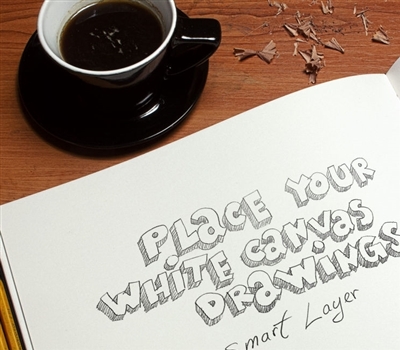 PLACE YOUR
WHiTE CANVAS
DRAWiNGS
Smart Layer